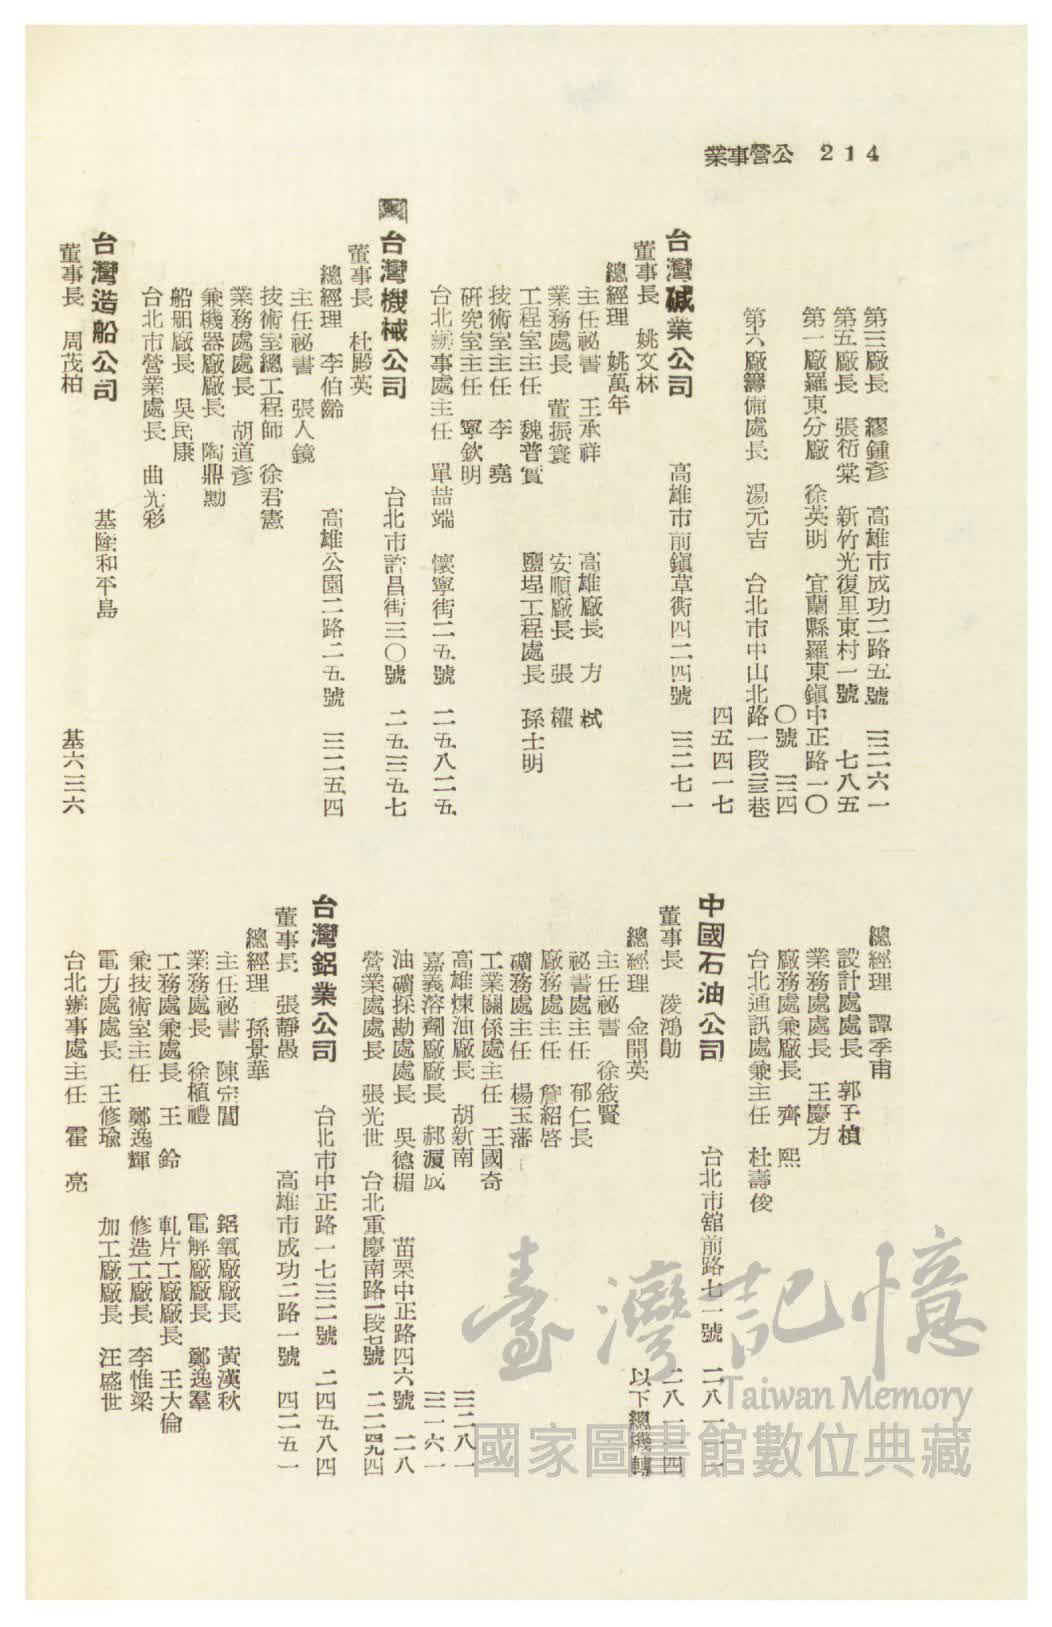 業事營公 214
第三廠長 繆鍾彥 高雄市成功二路五號 三二六一
第五廠長 張衍棠 新竹光復里東村一號 七八五
第一廠羅東分廠 徐英明 宜蘭縣羅東鎮中正路一〇
〇號 三四
第六廠籌備處長 湯元吉 台北市中山北路一段三三巷
四五四一七
台灣碱業公司 高雄市前鎮草衙四二四號 三二七一
董事長 姚文林
總經理 姚萬年
主任祕書 王承祥 高雄廠長 方 栻
業務處長 董振寰 安順廠長 張 權
工程室主任 魏普賓 鹽埕工程處長 孫士明
技術室主任 李 堯
研究室主任 寧欽明
台北辦事處主任 單喆端 懷寧街二五號 二五八二五
台灣機械公司 台北市許昌街三〇號 二五三五七
董事長 杜殿英
總經理 李伯齡 高雄公園二路二五號 三二五四
主任祕書 張人鏡
技術室總工程師 徐君憲
業務處處長 胡道彥
兼機器廠廠長 陶鼎勳
船舶廠長 吳民康
台北市營業處長 曲光彩
台灣造船公司 基隆和平島
董事長 周茂柏 基六三六
總經理 譚季甫
設計處處長 郭予楨
業務處處長 王慶方
廠務處兼廠長 齊 熙
台北通訊處兼主任 杜壽俊
中國石油公司 台北市舘前路七一號 二八一二一
董事長 凌鴻勛 二八一二四
總經理 金開英 以下總機轉
主任祕書 徐敍賢
祕書處主任 郁仁長
廠務處主任 詹紹啓
礦務處主任 楊玉藩
工業關係處主任 王國奇
高雄煉油廠長 胡新南 三二八一
嘉義溶劑廠廠長 郝履成 三一六一
油礦採勘處處長 吳德楣 苗栗中正路四六號 二八
營業處處長 張光世 台北重慶南路一段七號 二二四九四
台灣鋁業公司 台北市中正路一七三二號 二四五八四
董事長 張靜愚 高雄市成功二路一號 四二五一
總經理 孫景華
主任祕書 陳宗閣 鋁氧廠廠長 黃漢秋
業務處長 徐植禮 電解廠廠長 鄭逸羣
工務處兼處長 王 鈴 軋片工廠廠長 王大倫
兼技術室主任 鄭逸輝 修造工廠長 李惟梁
電力處處長 王修瑜 加工廠廠長 汪盛世
台北辦事處主任 霍 亮
臺灣記憶
Taiwan Memory
國家圖書館數位典藏